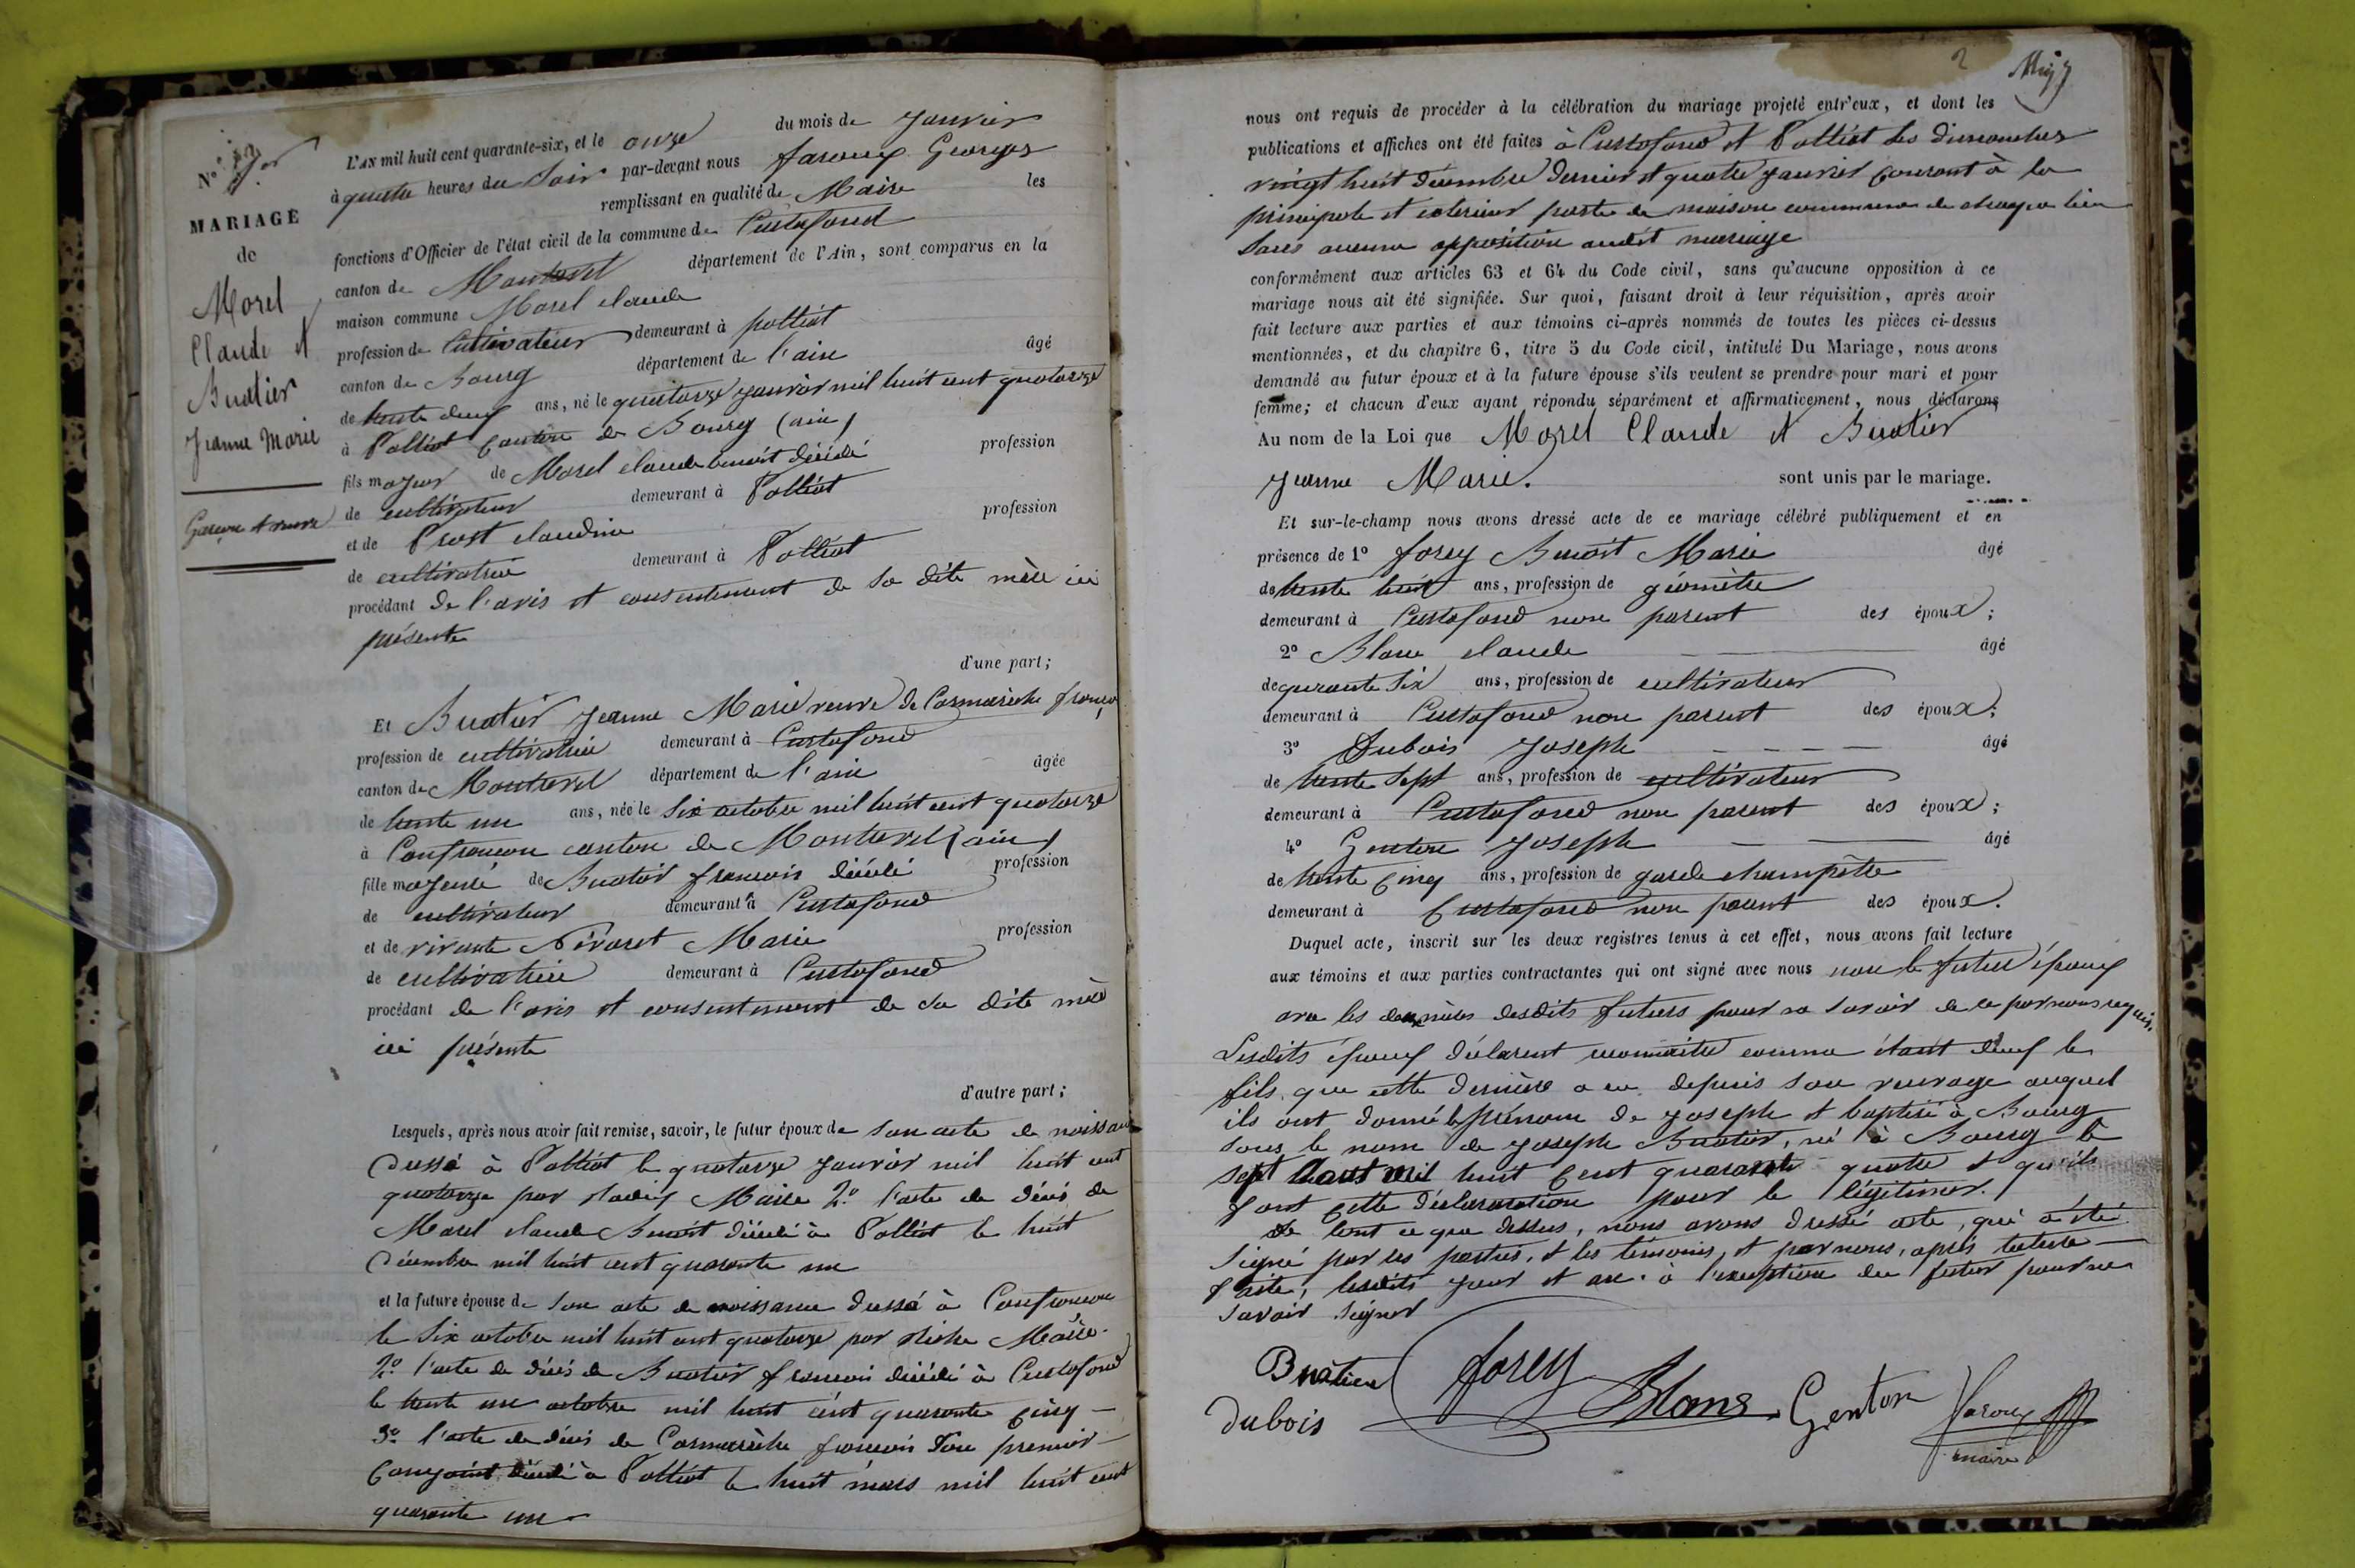 N.º 1er
MARIAGE
de
Morel
Claude et
Buatier
Jeanne Marie
Garçon et veuve
L'AN mil huit cent quarante-six, et le onze du mois de Janvier
à quatre heures du Soir par-devant nous Georges
remplissant en qualité de Maire les
fonctions d'Officier de l'état civil de la commune de Curtafond
canton de Montrevel département de l'Ain, sont comparus en la
maison commune Morel claude
profession de Cultivateur demeurant à polliat
canton de Bourg département de l'ain âgé
de trente deux ans, né le quatorze janvier mil huit cent quatorze
à Polliat Canton de Bourg (ain)
fils majeur de Morel claude benoit décédé profession
de cultivateur demeurant à Polliat
et de Prost claudine profession
de cultivatrice demeurant à Polliat
procédant de l'avis et consentement de sa dite mère ici
présente
d'une part;
Et Buatier Jeanne Marie veuve de Cormarèche françois
profession de cultivatrice demeurant à Curtafond
canton de Montrevel département de l'ain âgée
de trente un ans, née le six octobre mil huit cent quatorze
à Confrançon canton de Montrevel (ain)
fille majeure de Buatier françois décédé profession
de cultivateur demeurant à Curtafond
et de vivante Nivaret Marie profession
de cultivatrice demeurant à Curtafond
procédant de l'avis et consentement de sa dite mère
ici présente
d'autre part;
Lesquels, après nous avoir fait remise, savoir, le futur époux de son acte de naissance
dressé à Polliat le quatorze janvier mil huit cent
quatorze par Maire 2.º l'acte de décès de
Morel claude Benoit décédé à Polliat le huit
Décembre mil huit cent quarante un
et la future épouse de son acte de naissance dressé à Confrançon
le six octobre mil huit cent quatorze par Maire.
2.º l'acte de décès de Buatier françois décédé à Curtafond
le trente un octobre mil huit cent quarante cinq
3.º l'acte de décès de Cormarèche françois son premier
Conjoint décédé à Polliat le huit mars mil huit cent
quarante un
2
nous ont requis de procéder à la célébration du mariage projeté entr'eux, et dont les
publications et affiches ont été faites à Curtafond et Polliat les dimanches
vingt huit décembre dernier et quatre janvier Courant à la
principale et exterieur porte de maison commune de chaque lieu
sans aucune opposition audit mariage
conformément aux articles 63 et 64 du Code civil, sans qu'aucune opposition à ce
mariage nous ait été signifiée. Sur quoi, faisant droit à leur réquisition, après avoir
fait lecture aux parties et aux témoins ci-après nommés de toutes les pièces ci-dessus
mentionnées, et du chapitre 6, titre 5 du Code civil, intitulé Du Mariage, nous avons
demandé au futur époux et à la future épouse s'ils veulent se prendre pour mari et pour
femme; et chacun d'eux ayant répondu séparément et affirmativement, nous déclarons
Au nom de la Loi que Morel Claude et Buatier
Jeanne Marie. sont unis par le mariage.
Et sur-le-champ nous avons dressé acte de ce mariage célébré publiquement et en
présence de 1º Jorey Benoit Marie âgé
de trente huit ans, profession de géomètre
demeurant à Curtafond non parent des époux;
2º Blanc claude âgé
de quarante six ans, profession de cultivateur
demeurant à Curtafond non parent des époux;
3º Dubois Joseph âgé
de trente sept ans, profession de cultivateur
demeurant à Curtafond non parent des époux;
4º Genton Joseph âgé
de trente cinq ans, profession de garde champêtre
demeurant à Curtafond non parent des époux.
Duquel acte, inscrit sur les deux registres tenus à cet effet, nous avons fait lecture
aux témoins et aux parties contractantes qui ont signé avec nous non le futur époux
les deux mères desdits futurs pour ne savoir de ce par nous requis.
Lesdits époux déclarent reconnaitre comme étant d'eux le
fils que cette dernière a eu depuis son veuvage auquel
ils ont donné le prénom de joseph et baptisé à Bourg
sous le nom de joseph Buatier, né à Bourg le
sept aout mil huit Cent quarante quatre et qu'ils
font cette déclaration pour le légitimer.
de tout ce que dessus, nous avons dressé acte, qui a été
signé par les parties, et les témoins, et par nous, après lecture
faite, lesdits jour et an. à l'exception du futur pour ne
savoir signer
Buatier Jorey Blanc Genton
Dubois
maire